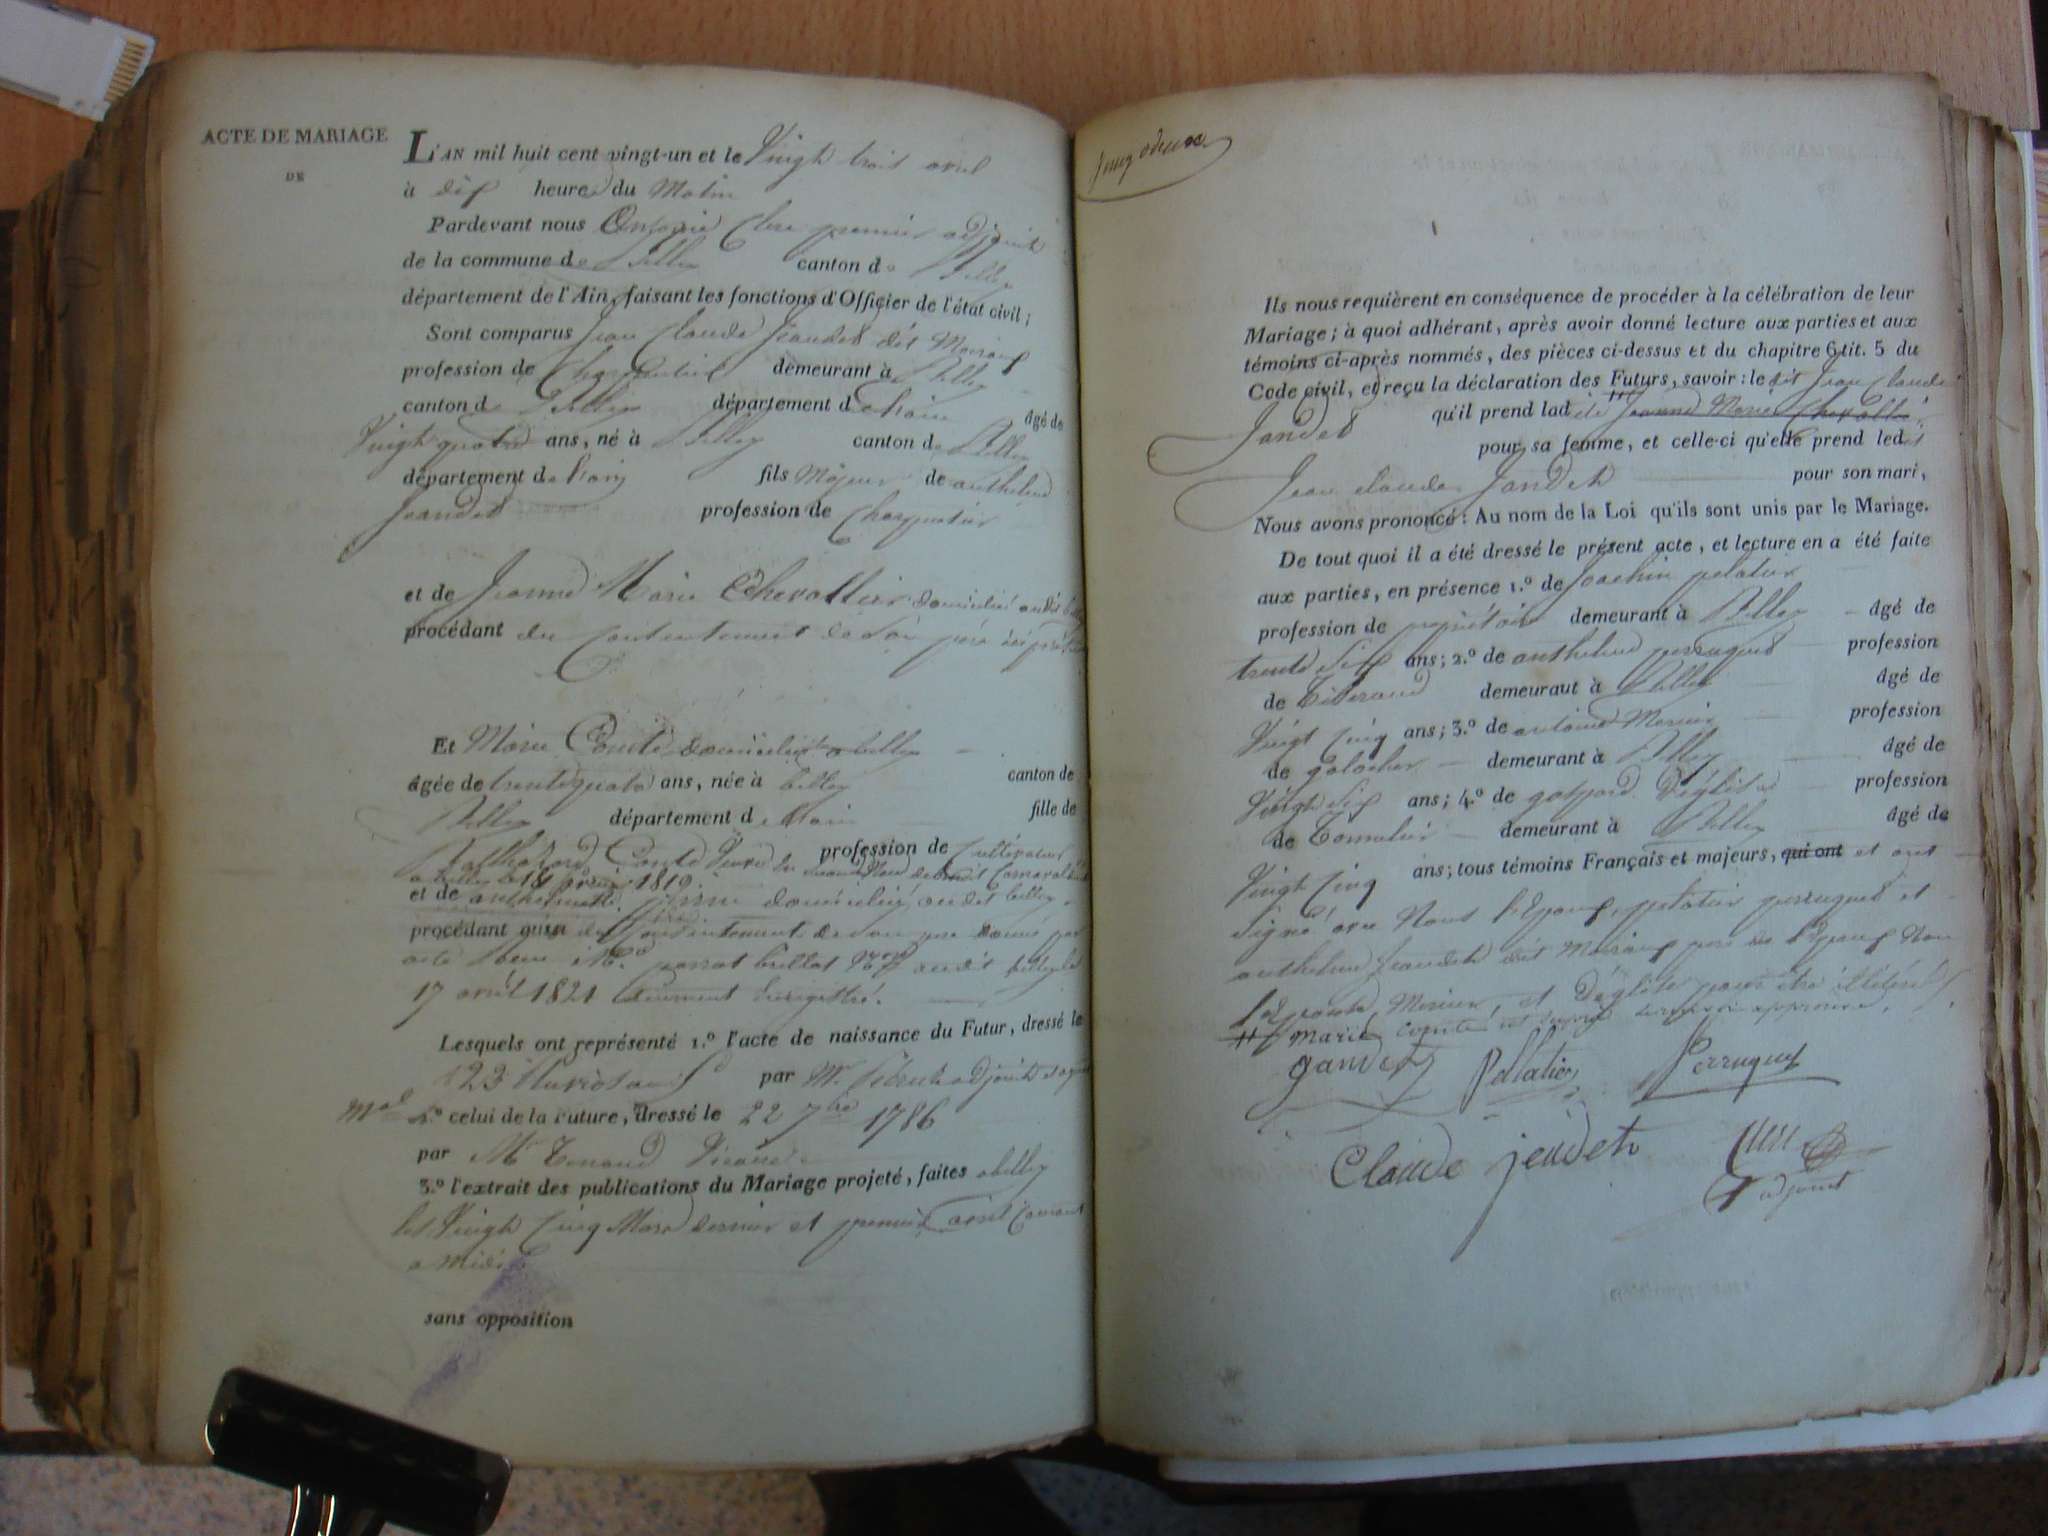 ACTE DE MARIAGE
DE
L'AN mil huit cent vingt-un et le Vingt trois avril
à dix heures du Matin
Pardevant nous Clerc premier adjoint
de la commune de Belley canton de Belley
département de l'Ain, faisant les fonctions d'Officier de l'état civil;
Sont comparus Jean Claude Jeandet dit
profession de Charpentier demeurant à Belley
canton de Belley département de l'ain âgé de
Vingt quatre ans, né à Belley canton de Belley
département de l'ain fils Majeur de anthelme
Jeandet profession de Charpentier
et de Jeanne Marie Chevallier domiciliés audit belley
procédant du Consentement de Son père ici présent
Et Marie Comte domiciliée a belley
âgée de trente quatre ans, née à belley canton de
Belley département de l'ain fille de
Balthazard Comte Veuve de profession de Cultivateur
a belley le 14 1819.
et de anthelmette domiciliés audit belley
procédant aussi du Consentement de Son père donné par
acte M.e brillat audit belley le
17 avril 1821 dument Enregistré.
Lesquels ont représenté 1.º l'acte de naissance du Futur, dressé le
23 Pluviose an 5 par Mr. adjoint
2.º celui de la Future, dressé le 22 7bre 1786
par Mr Vicaire
3.º l'extrait des publications du Mariage projeté, faites a belley
les Vingt Cinq Mars dernier et premier avril Courant
a midi
sans opposition
Ils nous requièrent en conséquence de procéder à la célébration de leur
Mariage; à quoi adhérant, après avoir donné lecture aux parties et aux
témoins ci-après nommés, des pièces ci-dessus et du chapitre 6 tit. 5 du
Code civil, et reçu la déclaration des Futurs, savoir: le dit Jean Claude
Jandet qu'il prend ladite Jeanne Marie Chevallier
pour sa femme, et celle-ci qu'elle prend ledit
Jean claude Jandet pour son mari,
Nous avons prononcé: Au nom de la Loi qu'ils sont unis par le Mariage.
De tout quoi il a été dressé le présent acte, et lecture en a été faite
aux parties, en présence 1.º de Joachim pelatier
profession de propriétaire demeurant à Belley âgé de
trente Six ans; 2.º de anthelme perruquet profession
de Tisserand demeuraut à Belley âgé de
Vingt Cinq ans; 3.º de antoine Mercier profession
de galocher demeurant à Belley âgé de
Vingt Six ans; 4.º de gaspard Déglise profession
de Tonnelier demeurant à Belley âgé de
Vingt Cinq ans; tous témoins Français et majeurs, qui ont et ont
Signé avec Nous l'Epoux, pelatier perruquet et
anthelme Jeandet dit père de l'Epoux Non
l'Epouse, Mercier, et Déglise pour être illitérés
Marie Comte
gandet Pellatier Perruquet
Claude jeudet Clerc
adjoint